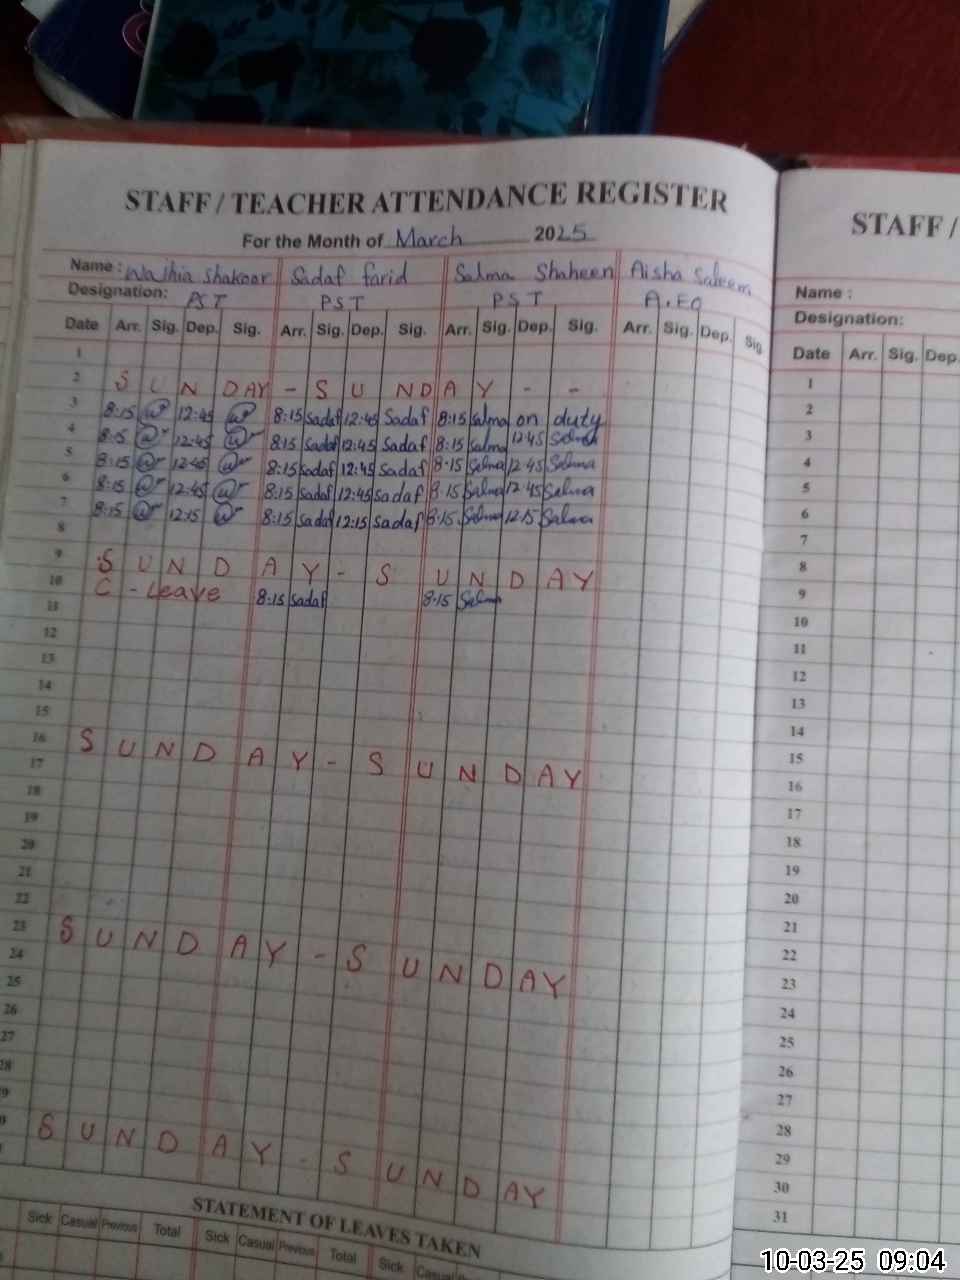 STAFF / TEACHER ATTENDANCE REGISTER
For the Month of March 2025
Name : Wajhia Shakoor Sadaf farid Salma Shaheen Aisha Saleem
Designation: PST PST PST A.EO
Date Arr. Sig. Dep. Sig. Arr. Sig. Dep. Sig. Arr. Sig. Dep. Sig. Arr. Sig. Dep. Sig.
1
2 S U N DAY - S U N D A Y - -
3 8:15 12:45 8:15 Sadaf 12:45 Sadaf 8:15 Salma on duty
4 8:15 12:45 8:15 Sadaf 12:45 Sadaf 8:15 Salma 12:45 Salma
5 8:15 12:45 8:15 Sadaf 12:45 Sadaf 8:15 Salma 12:45 Salma
6 8:15 12:45 8:15 Sadaf 12:45 Sadaf 8:15 Salma 12:45 Salma
7 8:15 12:15 8:15 Sadaf 12:15 Sadaf 8:15 Salma 12:15 Salma
8
9 S U N D A Y - S U N D A Y
10 C - Leave 8:15 Sadaf 8:15 Salma
11
12
13
14
15
16 S U N D A Y - S U N D A Y
17
18
19
20
21
22
23 S U N D A Y - S U N D A Y
24
25
26
27
28
9
0 S U N D A Y - S U N D A Y
STATEMENT OF LEAVES TAKEN
Sick Casual Previous Total Sick Casual Previous Total Sick Casual
STAFF /
Name :
Designation:
Date Arr. Sig. Dep.
1
2
3
4
5
6
7
8
9
10
11
12
13
14
15
16
17
18
19
20
21
22
23
24
25
26
27
28
29
30
31
10-03-25 09:04